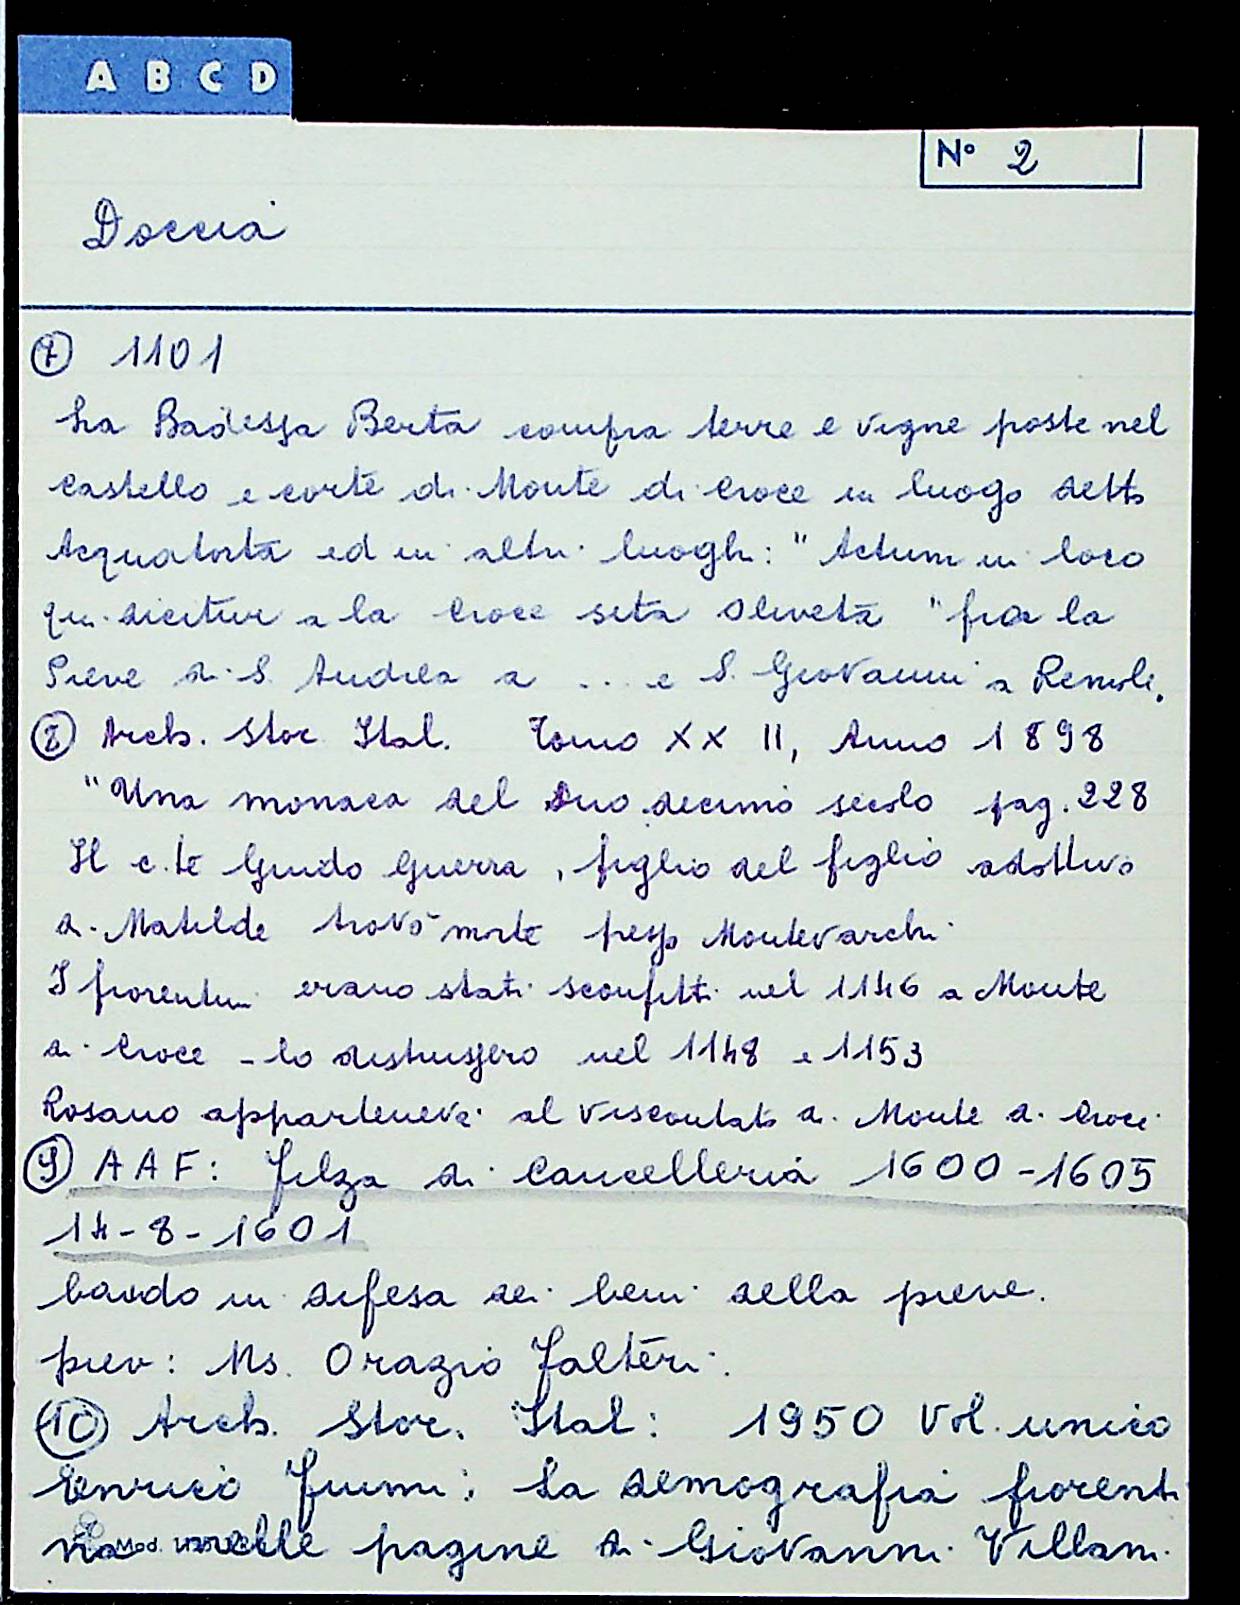 A B C D
N° 2
Doccia
7 1101
La Badessa Berta compra terre e vigne poste nel
castello e corte di Monte di Croce in luogo detto
Acquatorta ed in altri luoghi: "Actum in loco
qui dicitur a la Croce sita Oliveta" fra la
Pieve di S. Andrea a ... e S. Giovanni a Remole.
8 Arch. Stor. Ital. Tomo XX II, Anno 1898
"Una monaca del duodecimo secolo pag. 228
Il c.te Guido Guerra, figlio del figlio adottivo
di Matilde trovò morte presso Montevarchi.
I fiorentini erano stati sconfitti nel 1146 a Monte
di Croce - lo distrussero nel 1148 e 1153
Rosano apparteneva al viscontato di Monte di Croce.
9 AAF: Filza di Cancelleria 1600-1605
14-8-1601
bando in difesa dei beni della pieve.
piev: Ms. Orazio Falteri.
10 Arch. Stor. Ital: 1950 Vol. unico
Enrico Fiumi: La demografia fiorenti
na nelle pagine di Giovanni Villani.
Mod.